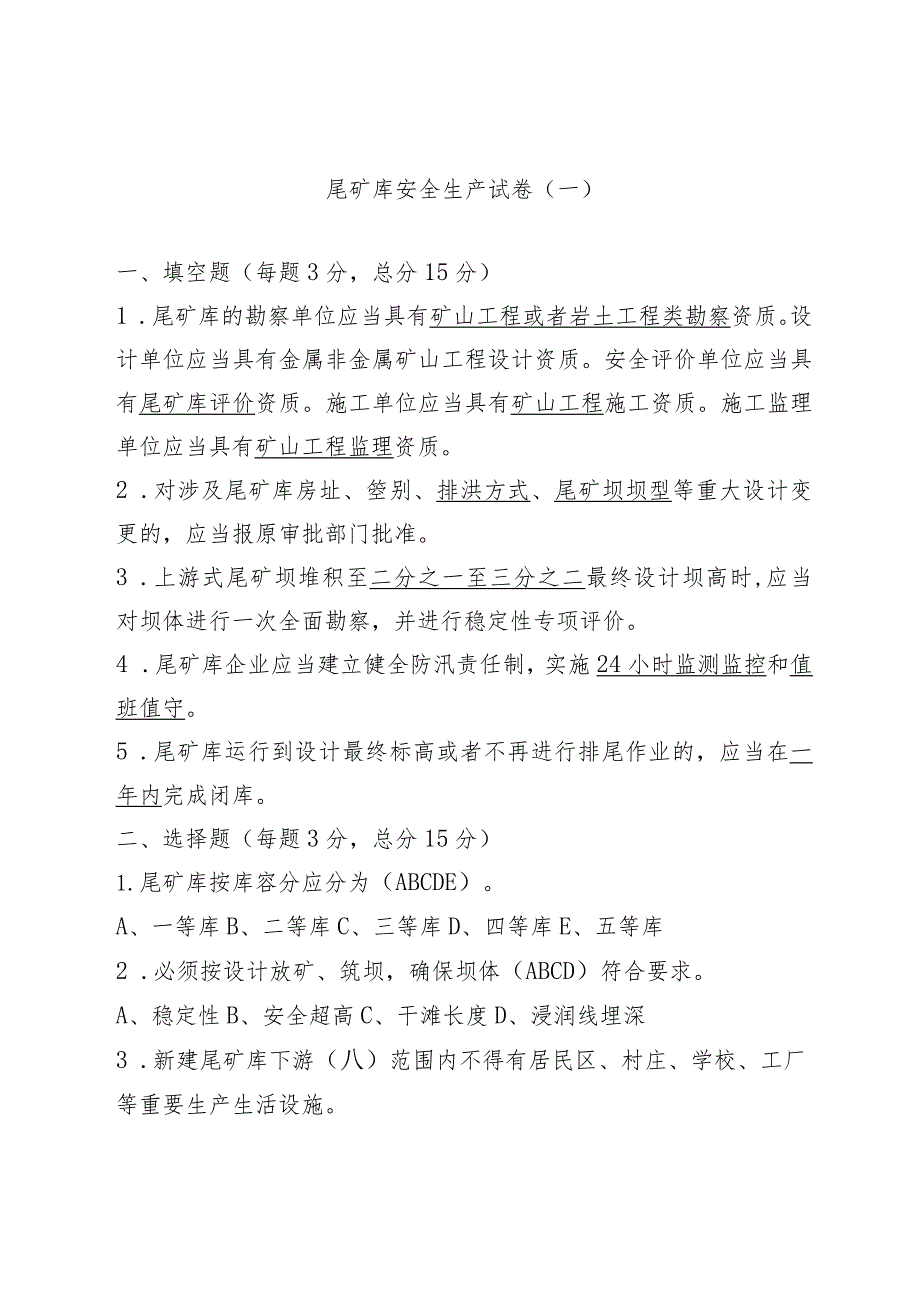 尾矿库安全生产试卷（一）
一、填空题（每题3分，总分15分）
1．尾矿库的勘察单位应当具有矿山工程或者岩土工程类勘察资质。设
计单位应当具有金属非金属矿山工程设计资质。安全评价单位应当具
有尾矿库评价资质。施工单位应当具有矿山工程施工资质。施工监理
单位应当具有矿山工程监理资质。
2．对涉及尾矿库房址、箜别、排洪方式、尾矿坝坝型等重大设计变
更的，应当报原审批部门批准。
3．上游式尾矿坝堆积至二分之一至三分之二最终设计坝高时,应当
对坝体进行一次全面勘察，并进行稳定性专项评价。
4．尾矿库企业应当建立健全防汛责任制，实施24小时监测监控和值
班值守。
5．尾矿库运行到设计最终标高或者不再进行排尾作业的，应当在一
年内完成闭库。
二、选择题（每题3分，总分15分）
1.尾矿库按库容分应分为（ABCDE）。
A、一等库B、二等库C、三等库D、四等库E、五等库
2．必须按设计放矿、筑坝，确保坝体（ABCD）符合要求。
A、稳定性B、安全超高C、干滩长度D、浸润线埋深
3．新建尾矿库下游（八）范围内不得有居民区、村庄、学校、工厂
等重要生产生活设施。